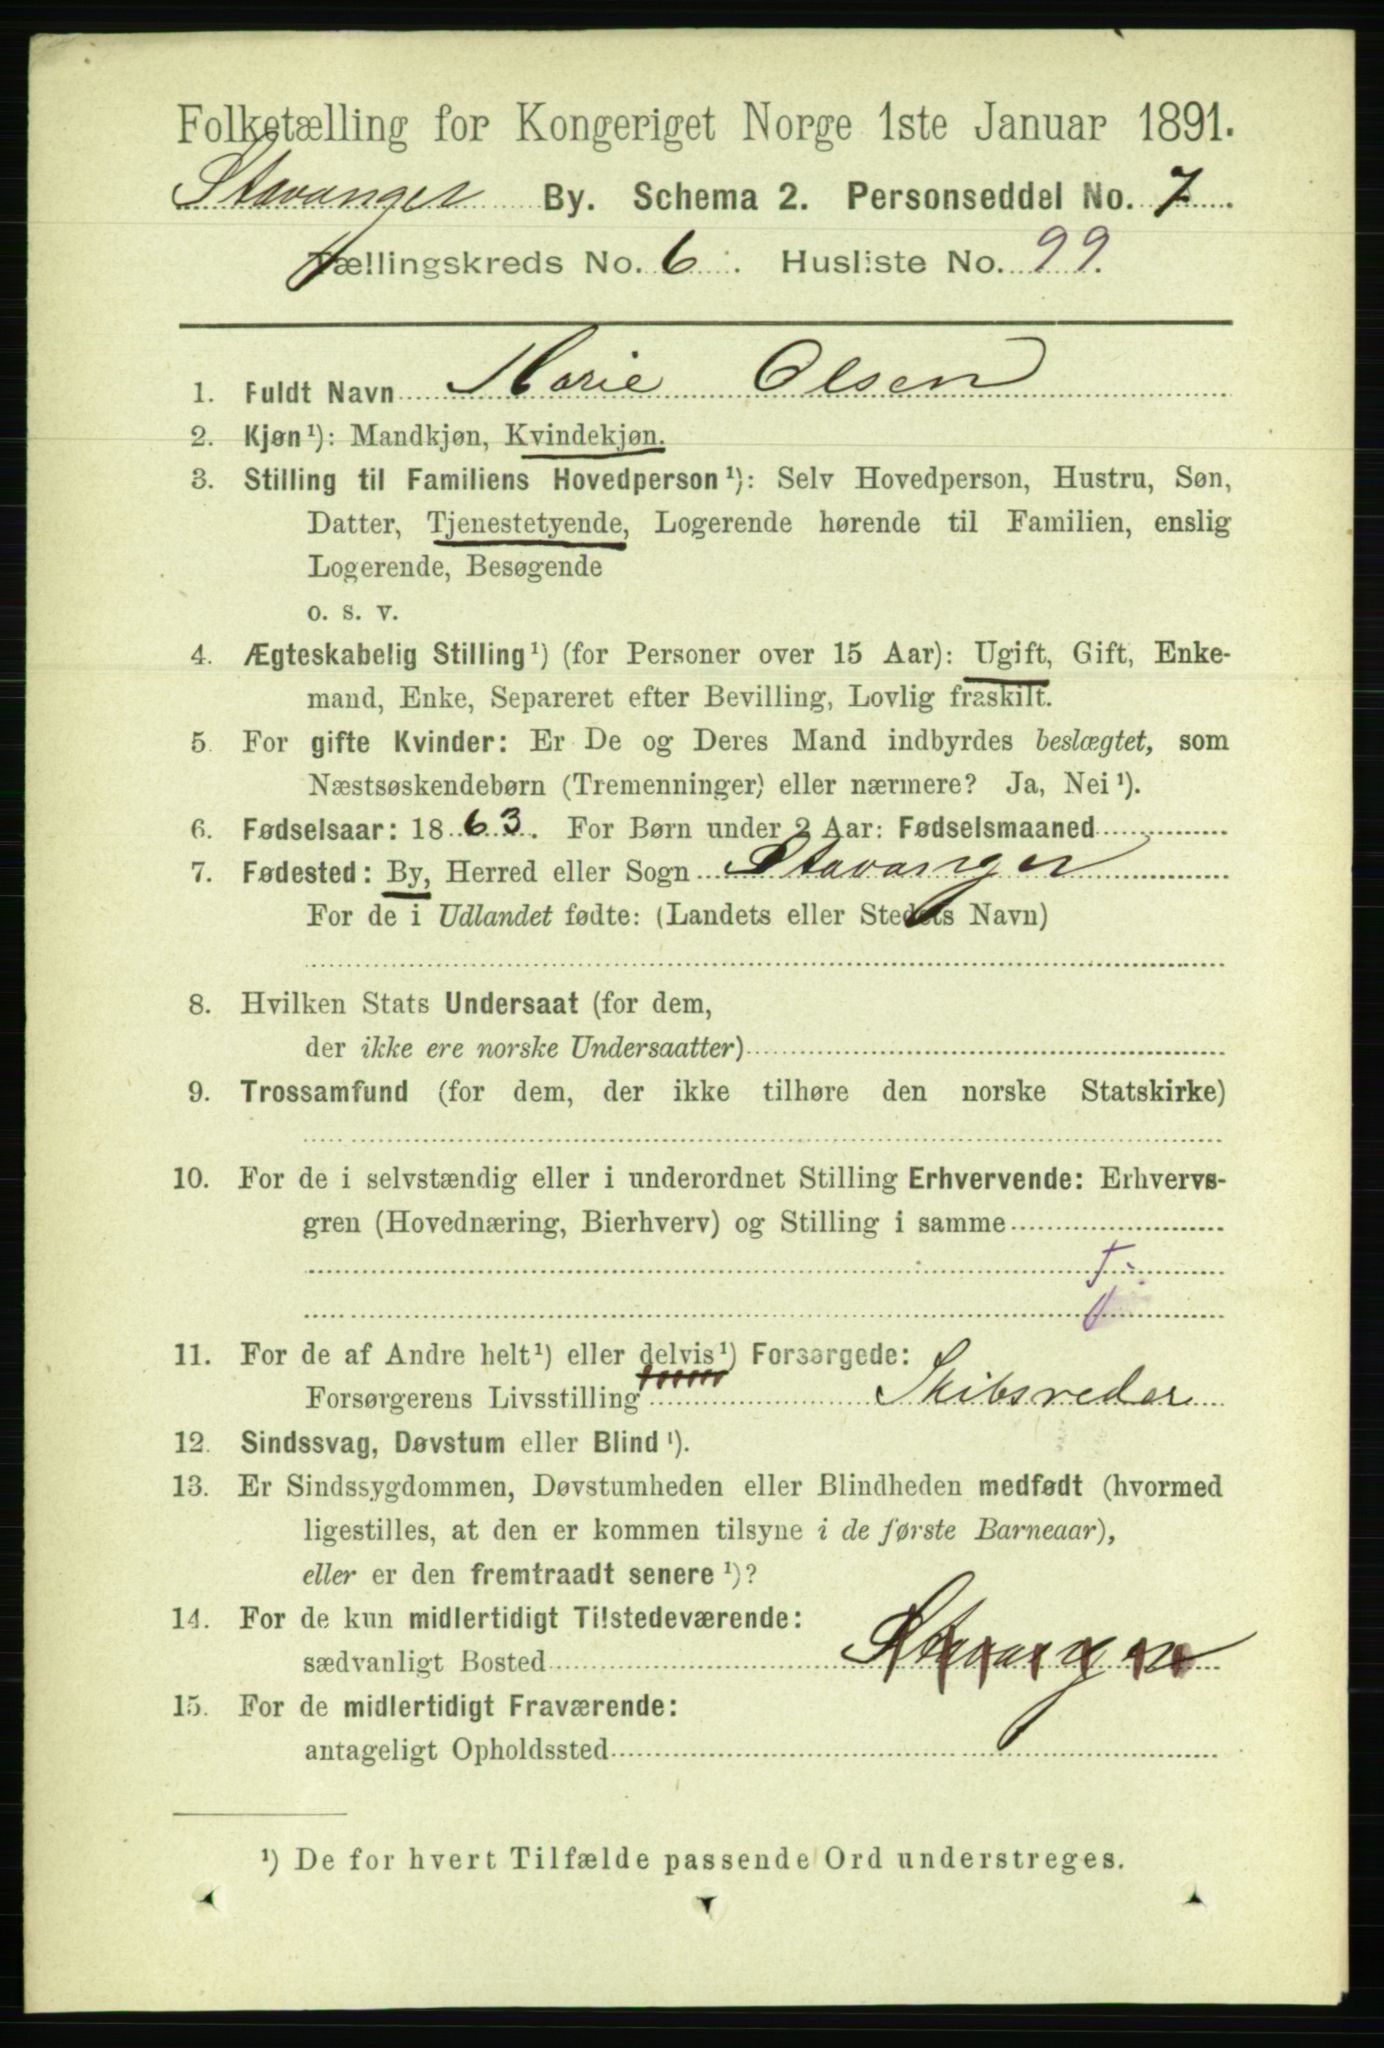 Folketælling for Kongeriget Norge 1ste Januar 1891.
Stavanger By. Schema 2. Personseddel No. 7.
Tællingskreds No. 6. Husliste No. 99.
1. Fuldt Navn Marie Olsen
2. Kjøn¹): Mandkjøn, Kvindekjøn.
3. Stilling til Familiens Hovedperson¹): Selv Hovedperson, Hustru, Søn,
Datter, Tjenestetyende, Logerende hørende til Familien, enslig
Logerende, Besøgende
o. s. v.
4. Ægteskabelig Stilling¹) (for Personer over 15 Aar): Ugift, Gift, Enke-
mand, Enke, Separeret efter Bevilling, Lovlig fraskilt.
5. For gifte Kvinder: Er De og Deres Mand indbyrdes beslægtet, som
Næstsøskendebørn (Tremenninger) eller nærmere? Ja, Nei¹).
6. Fødselsaar: 1863. For Børn under 2 Aar: Fødselsmaaned
7. Fødested: By, Herred eller Sogn Stavanger
For de i Udlandet fødte: (Landets eller Stedets Navn)
8. Hvilken Stats Undersaat (for dem,
der ikke ere norske Undersaatter)
9. Trossamfund (for dem, der ikke tilhøre den norske Statskirke)
10. For de i selvstændig eller i underordnet Stilling Erhvervende: Erhvervs-
gren (Hovednæring, Bierhverv) og Stilling i samme
11. For de af Andre helt¹) eller delvis¹) Forsørgede:
Forsørgerens Livsstilling Skibsreder
12. Sindssvag, Døvstum eller Blind¹).
13. Er Sindssygdommen, Døvstumheden eller Blindheden medfødt (hvormed
ligestilles, at den er kommen tilsyne i de første Barneaar),
eller er den fremtraadt senere¹)?
14. For de kun midlertidigt Tilstedeværende:
sædvanligt Bosted Stavanger
15. For de midlertidigt Fraværende:
antageligt Opholdssted
¹) De for hvert Tilfælde passende Ord understreges.